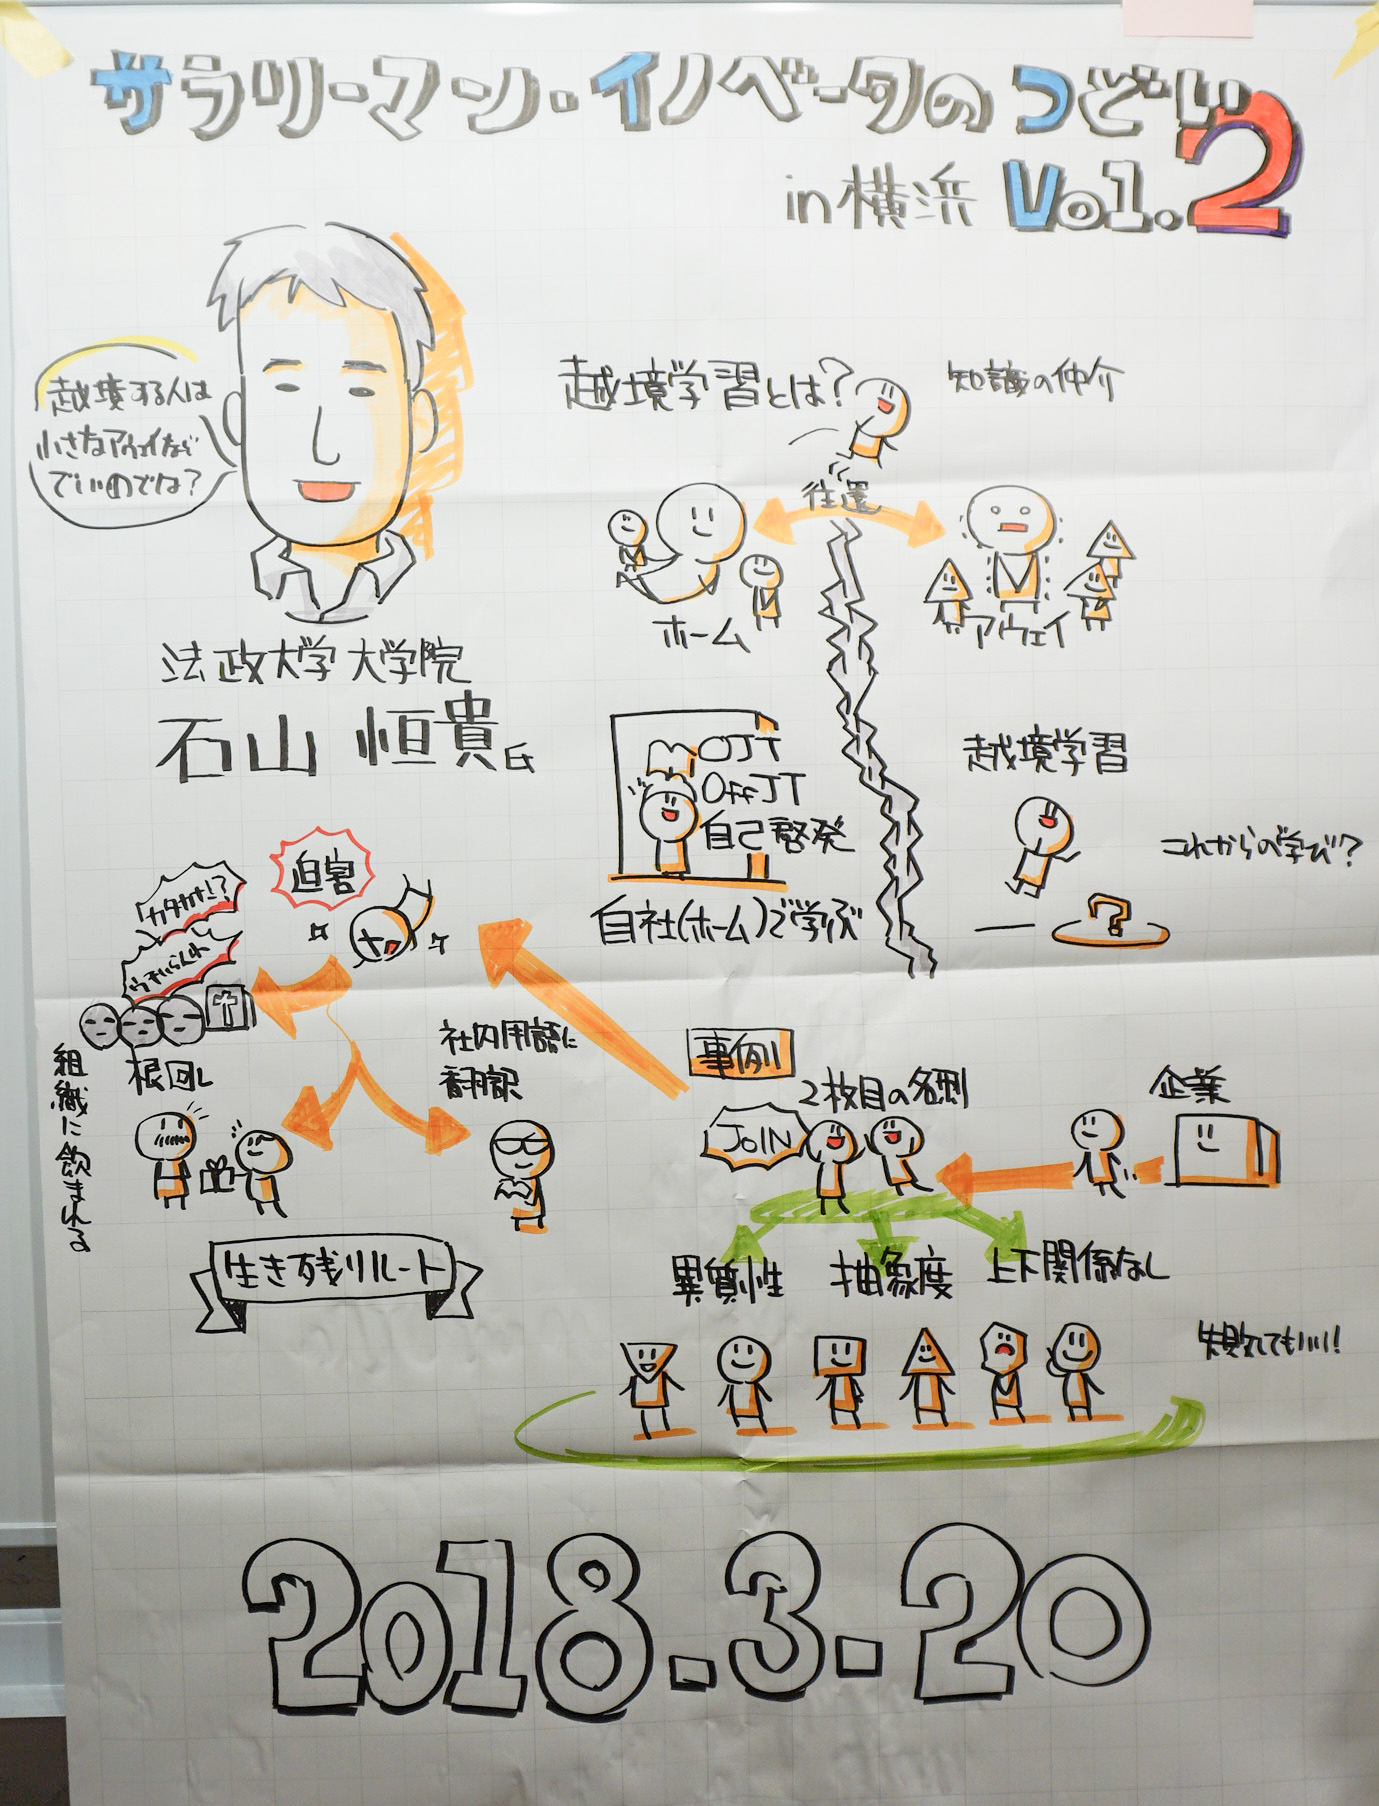 サラリーマン・イノベータのつどい
in 横浜 Vol.2
越境する人は
小さなアウェイなら
でいいのでは？
法政大学 大学院
石山 恒貴氏
越境学習とは？
知識の仲介
往還
ホーム
アウェイ
OJT
OffJT
自己啓発
自社(ホーム)で学ぶ
越境学習
これからの学び？
迫害
カタカナ!?
ウチいらんわ
組織に飲まれる
根回し
社内用語に
翻訳
生き残りルート
事例
2枚目の名刺
JOIN
企業
異質性
抽象度
上下関係なし
失敗してもいい!
2018.3.20